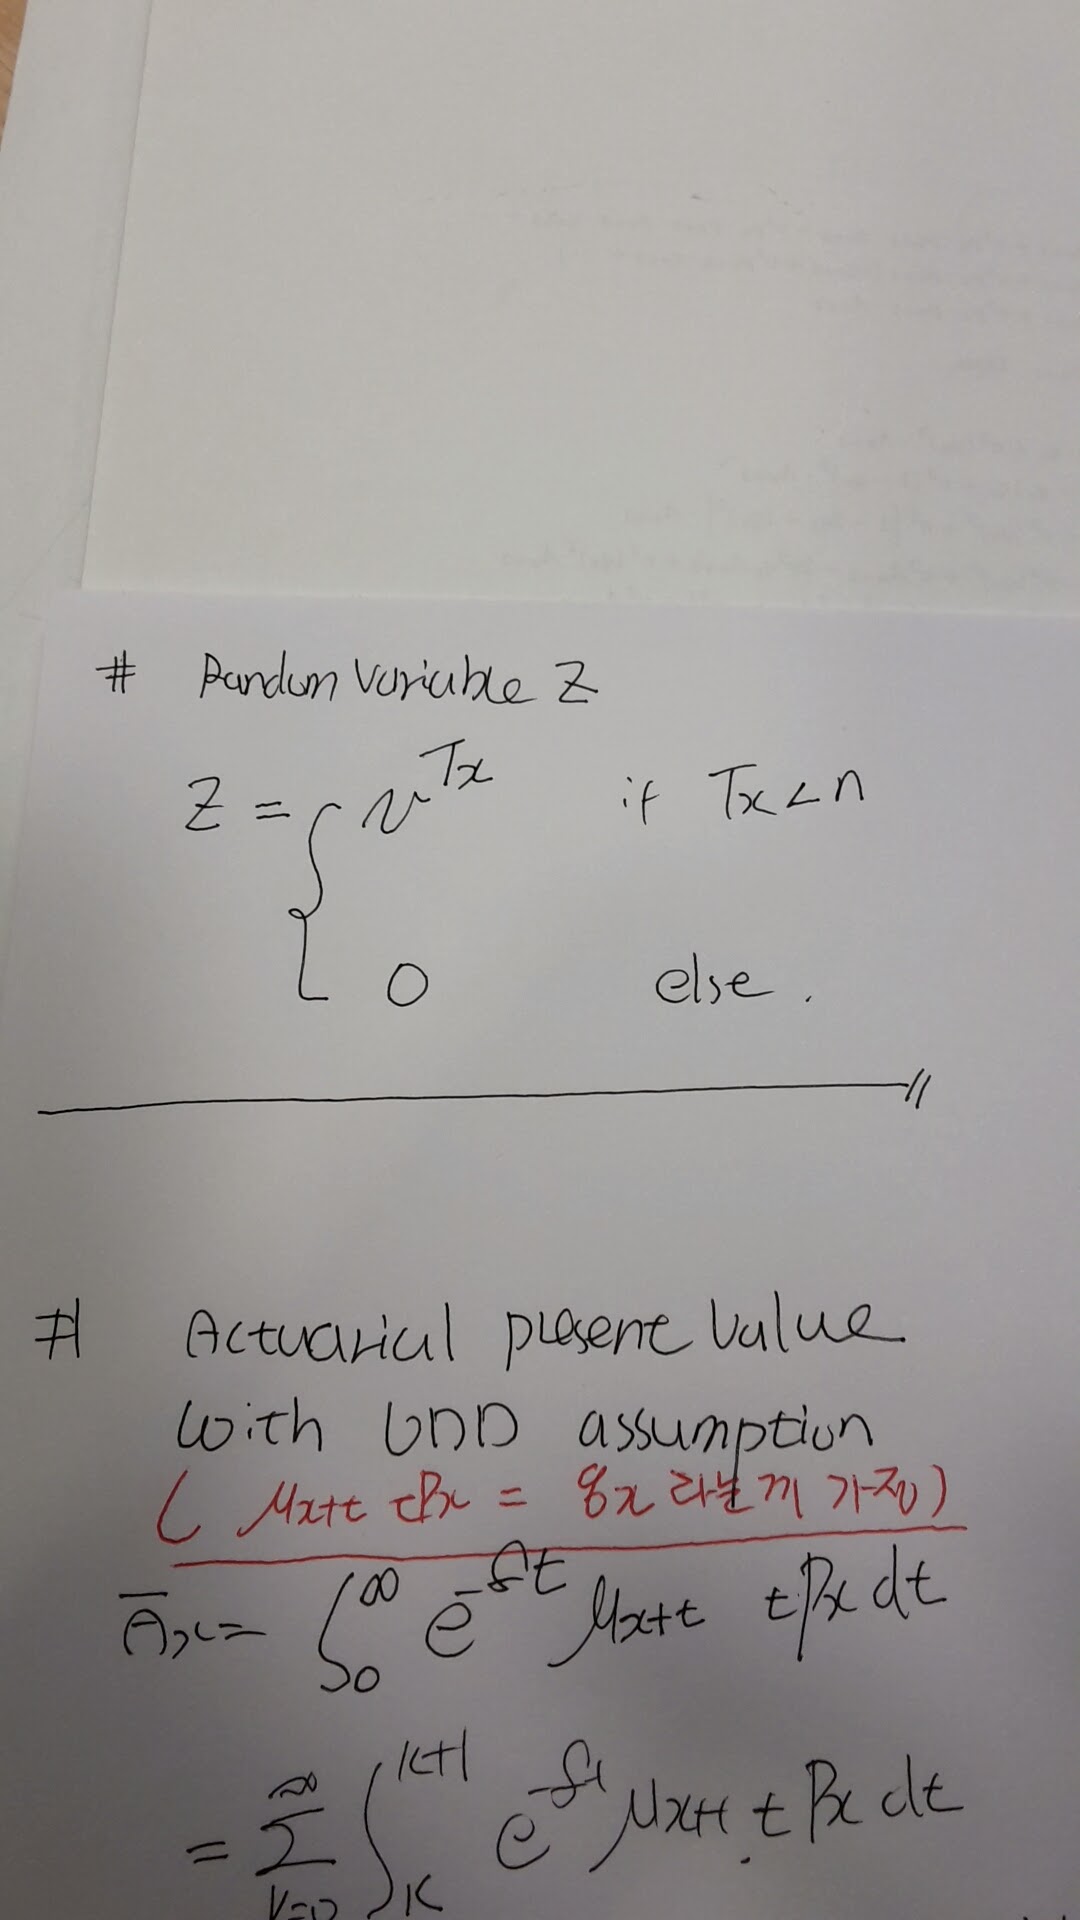 # Random Variable Z
Z = { v^Tx if Tx < n
0 else.
# Actuarial present Value
with UDD assumption
( μx+t tPx = qx 라는 가정)
Āx = ∫₀^∞ e^-δt μx+t tPx dt
= Σ_{k=0}^∞ ∫_K^{K+1} e^-δt μx+t tPx dt